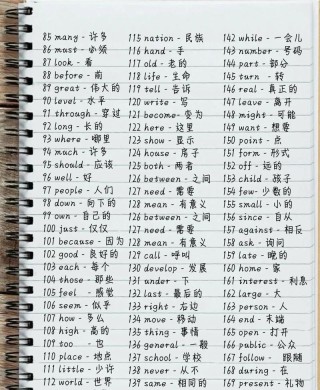 85 many - 许多
86 must - 必须
87 look - 看
88 before - 前
89 great - 伟大的
90 level - 水平
91 through - 穿过
92 long - 长的
93 where - 哪里
94 much - 许多
95 should - 应该
96 well - 好
97 people - 人们
98 down - 向下的
99 own - 自己的
100 just - 仅仅
101 because - 因为
102 good - 良好的
103 each - 每个
104 those - 那些
105 feel - 感觉
106 seem - 似乎
107 how - 多么
108 high - 高的
109 too - 也
110 place - 地点
111 little - 少许
112 world - 世界
115 nation - 民族
116 hand - 手
117 old - 老的
118 life - 生命
119 tell - 告诉
120 write - 写
121 become - 变为
122 here - 这里
123 show - 显示
124 house - 房子
125 both - 两者
126 between - 之间
127 need - 需要
128 mean - 有意义
126 between - 之间
127 need - 需要
128 mean - 有意义
129 call - 呼叫
130 develop - 发展
131 under - 下
132 last - 最后的
133 right - 右边
134 move - 移动
135 thing - 事情
136 general - 一般
137 school - 学校
138 never - 从不
139 same - 相同的
142 while - 一会儿
143 number - 号码
144 part - 部分
145 turn - 转
146 real - 真正的
147 leave - 离开
148 might - 可能
149 want - 想要
150 point - 点
151 form - 形式
152 off - 远的
153 child - 孩子
154 few - 少数的
155 small - 小的
156 since - 自从
157 against - 相反
158 ask - 询问
159 late - 晚的
160 home - 家
161 interest - 利息
162 large - 大
163 person - 人
164 end - 末端
165 open - 打开
166 public - 公众
167 follow - 跟随
168 during - 在
169 present - 礼物